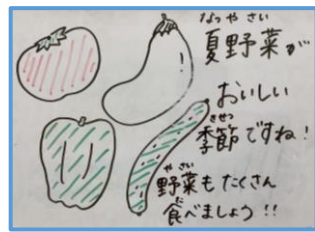 なつやさい
夏野菜が
おいしい
きせつ
季節ですね!
やさい
野菜もたくさん
た
食べましょう!!